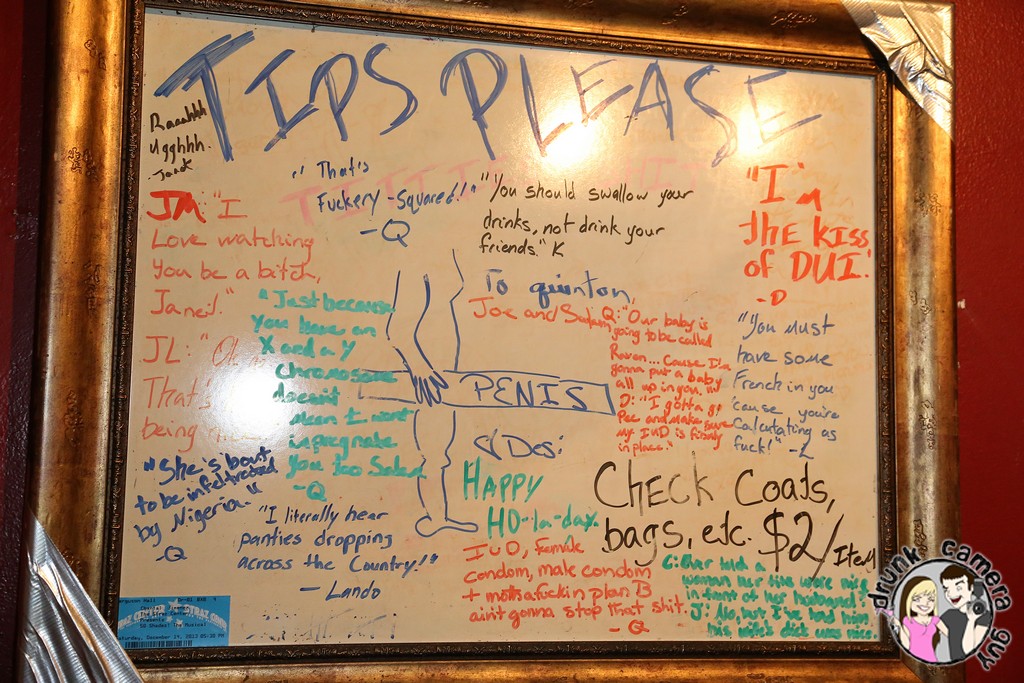 TIPS PLEASE
Raaahhh
Ugghhh.
JM: "I
Love watching
You be a bitch,
Jane!"
JL: "Oh
That's
being
"That's
Fuckery-Squared!"
-Q
"You should swallow your
drinks, not drink your
friends." K
"I'm
the Kiss
of DUI."
-D
"Just because
You have an
X and a Y
Chromosome
doesn't
mean I want
impregnate
you too
-Q
To quinton,
Joe and
Q: "Our baby is
going to be called
Raven... Cause I'm
gonna put a baby
all up in you."
D: "I gotta go
Pee and make sure
my IUD is firmly
in place."
"You Must
have some
French in you
'cause you're
Calculating as
fuck!" -L
PENIS
"She's bout
to be infiltrated
by Nigeria."
-Q
"I literally hear
panties dropping
across the Country!"
- Lando
Des:
HAPPY
HO-la-day.
IUD, Female
condom, male condom
+ mothafuckin plan B
aint gonna stop that shit.
- Q
CHECK Coats,
bags, etc. $2/Item
told a
woman her tits were nice
in front of her husband?
J: No, but I've told him
his wife's dick was nice.
drunk camera guy